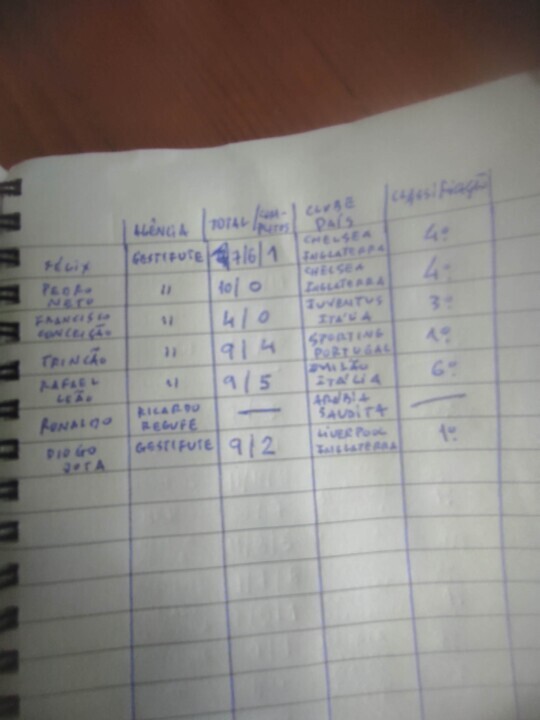 AGÊNCIA TOTAL/COM-PLETOS CLUBE PAÍS CLASSIFICAÇÃO
FÉLIX GESTIFUTE 7/6/1 CHELSEA INGLATERRA 4º
PEDRO NETO " 10/0 CHELSEA INGLATERRA 4º
FRANCISCO CONCEIÇÃO " 4/0 JUVENTUS ITÁLIA 3º
TRINCÃO " 9/4 SPORTING PORTUGAL 1º
RAFAEL LEÃO " 9/5 MILÃO ITÁLIA 6º
RONALDO RICARDO REGUFE — ARÁBIA SAUDITA —
DIOGO JOTA GESTIFUTE 9/2 LIVERPOOL INGLATERRA 1º